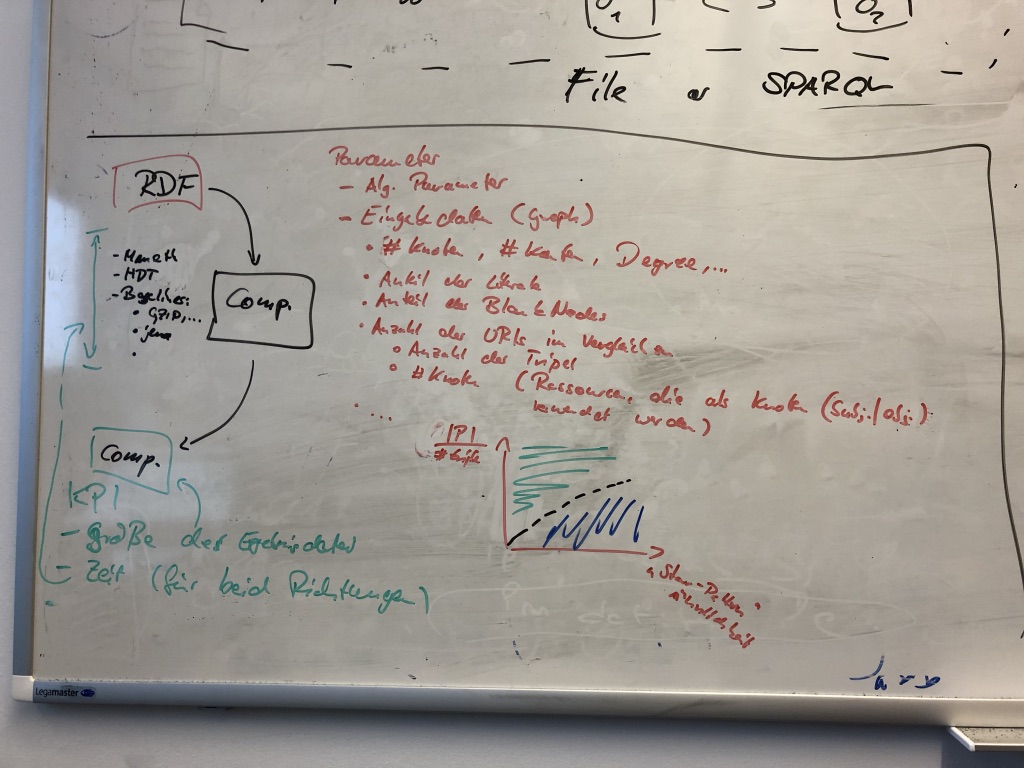 O1 O2
File or SPARQL
RDF
- HDT
- Baselines:
• GZIP,...
• jena
•
Comp.
Comp.
KPI
- Größe der Ergebnisdaten
- Zeit (für beid Richtungen)
Parameter
- Alg. Parameter
- Eingabedaten (Graph)
• # Knoten, # Kanten, Degree,...
• Anteil der Literale
• Anteil der Blank Nodes
• Anzahl der URIs im Vergleich zu
• Anzahl der Tripel
• # Knoten (Ressourcen, die als Knoten (Subj./Obj.)
verwendet werden)
• ...
|P|
"Star-Pattern"
Ähnlichkeit
Legamaster